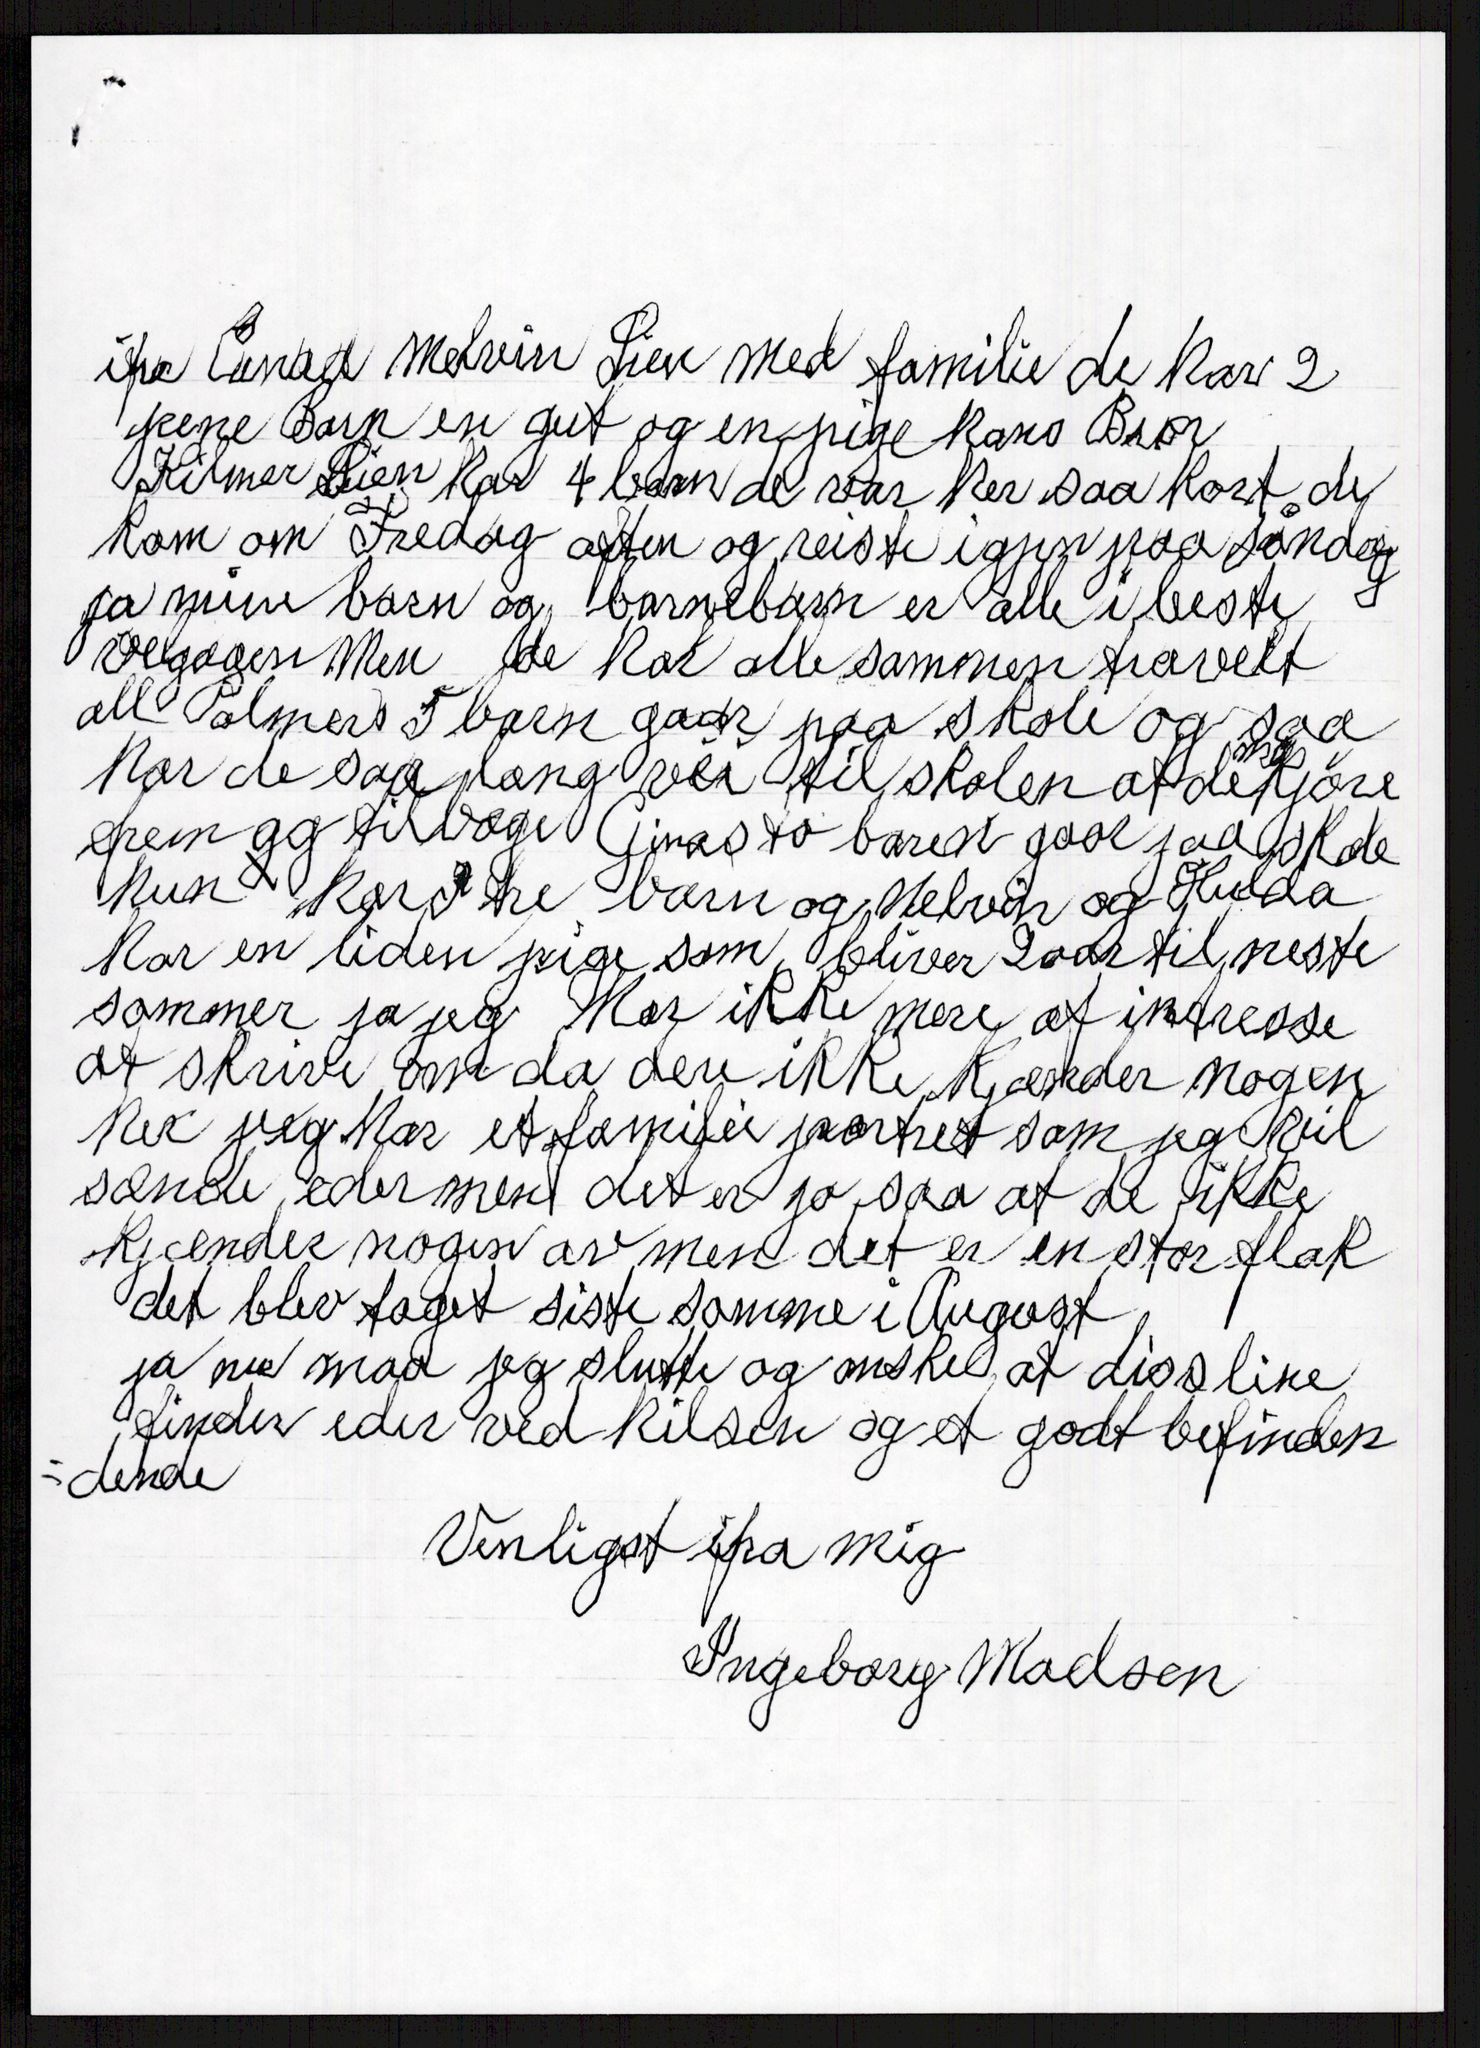 ifra Canada Melvin Lien med familie de har 2
pene Barn en gut og en pige hans Bror
Hilmer Lien har 4 barn de var her saa kort de
kom om Fredag aften og reiste igjen paa söndag
ja mine barn og barnebarn er alle i beste
velgaaen Men de har alle sammen travelt
all Palmers 5 barn gaar paa skole og saa
har de saa lang vei til skolen at de maa kjöre
frem og tilbage Ginas to baren gaar paa skole
hun har tre barn og Melvin og Hulda
har en liden pige som bliver 2 aar til neste
sommer ja jeg har ikke mere af intresse
at skrive om da dere ikke kjænder nogen
her jeg har et familie portret som jeg vil
sænde eder men det er jo saa at de ikke
kjænder nogen av men det er en stor flak
det blev taget siste somme i August
ja nu maa jeg slutte og ønske at diss line
finder eder ved hilsen og et godt befinden
=dende
Venligst ifra mig
Ingeborg Madsen